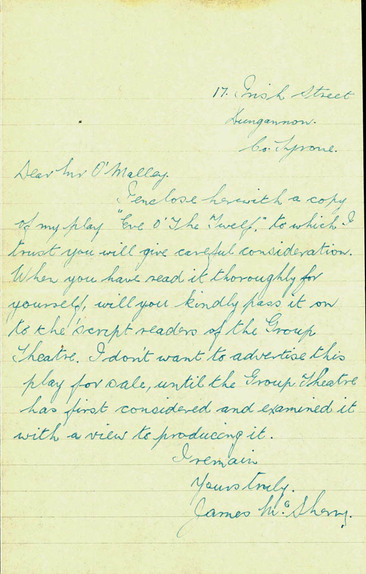 17. Irish Street
Dungannon.
Co. Tyrone.
Dear Mr O'Malley.
I enclose herewith a copy
of my play "Eve O' The Twelf," to which I
trust you will give careful consideration.
When you have read it thoroughly for
yourself, will you kindly pass it on
to the script readers of the Group
Theatre. I don't want to advertise this
play for sale, until the Group Theatre
has first considered and examined it
with a view to producing it.
I remain
Yours truly.
James McSherry.